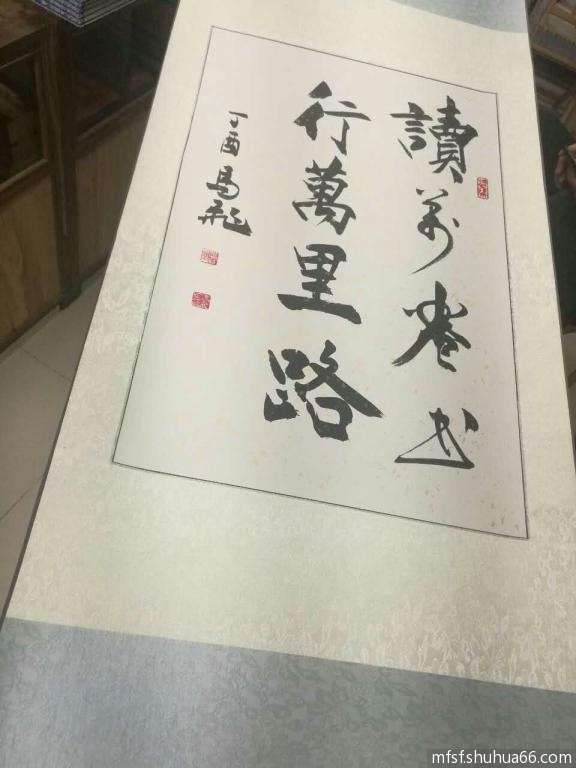 讀万卷书
行萬里路
丁酉馬飛
mfsf.shuhua66.com